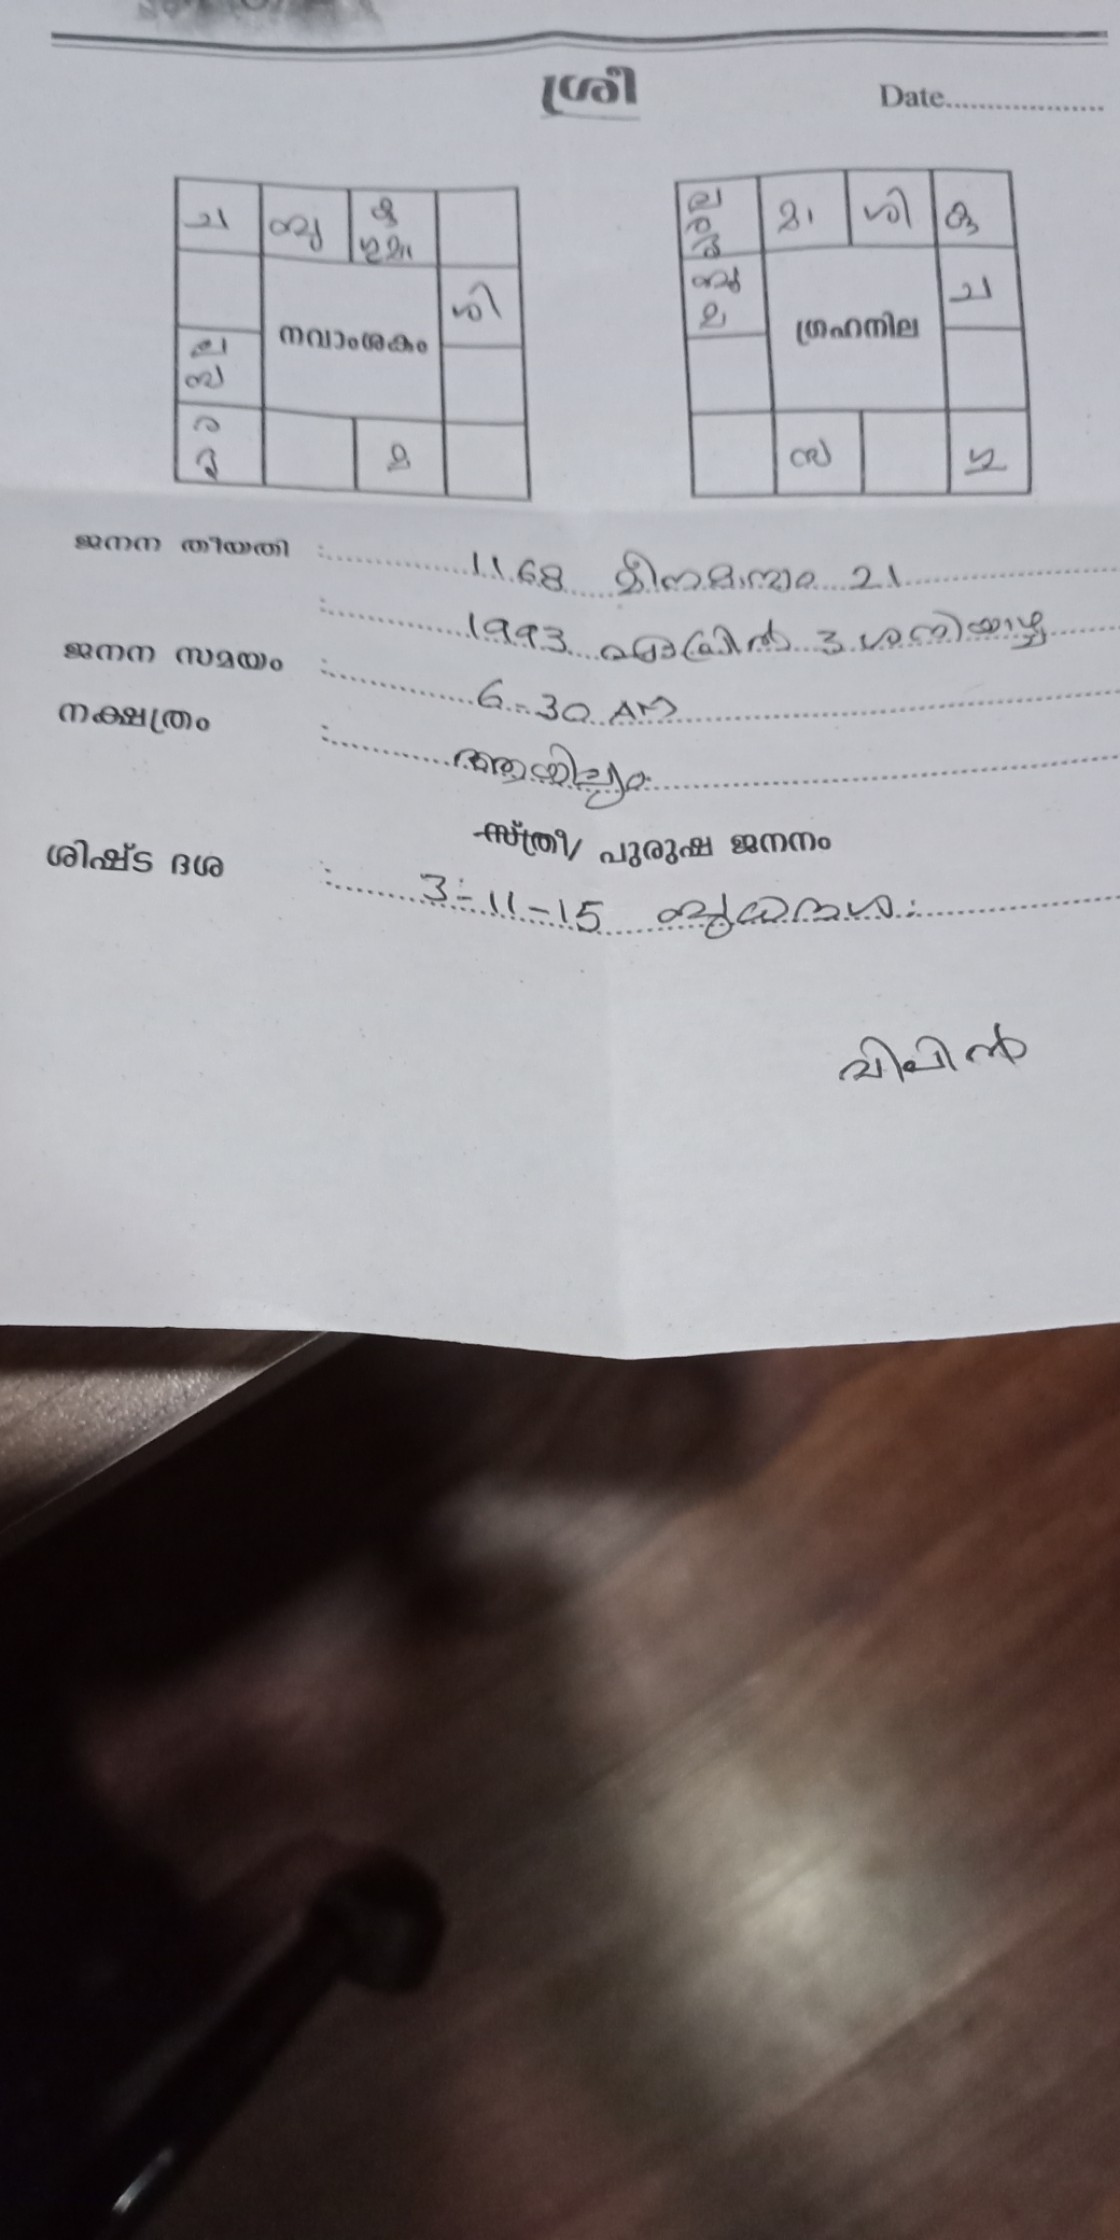 ശ്രീ
Date
ച ബു കു
ഗു മാ
ശി
നവാംശകം
ല
സ
ര
മ
ല
ര
മാ ശി കു
ബു
മ
ച
ഗ്രഹനില
സ ഗു
ജനന തീയതി : 1168 മീനമാസം 21
: 1993 ഏപ്രിൽ 3 ശനിയാഴ്ച
ജനന സമയം : 6-30 AM
നക്ഷത്രം : ആയില്യം
സ്ത്രീ/ പുരുഷ ജനനം
ശിഷ്ട ദശ : 3-11-15 ബുധദശ:
വിപിൻ